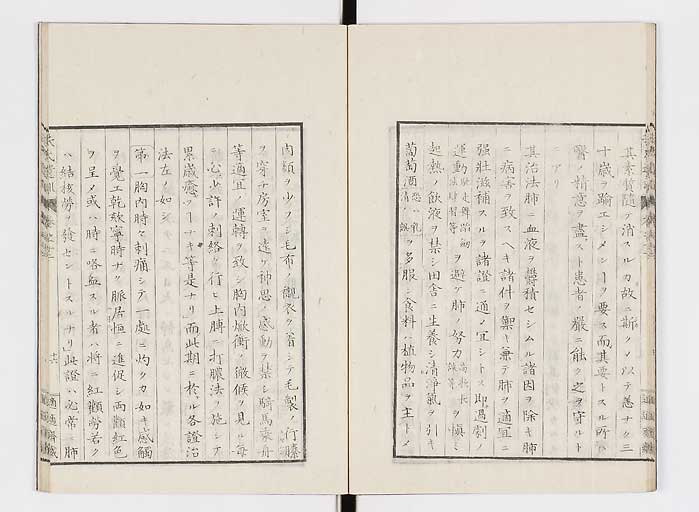 其素質隨テ消スルカ故ニ斯クノ以テ恙ナク三
十歳ヲ踰エシメンヿヲ要ス而其要トスル所ハ
醫ノ精意ヲ盡スト患者ノ嚴ニ能ク之ヲ守ルト
ニアリ
其治法肺ニ血液ヲ欝積セシムル諸因ヲ除キ肺
ニ病害ヲ致スヘキ諸件ヲ禦キ兼テ肺ヲ適宜ニ
強壮滋補スルヲ諸證ニ通ノ宜シトス即過劇ノ
運動 ヲ避ケ肺ノ努力 ヲ愼ミ
起熱ノ飲液ヲ禁シ田舎ニ生養シ清浄氣ヲ引キ
葡萄酒 ヲ多服シ食料ハ植物品ヲ主トメ
肉類ヲ少フシ毛布ノ襯衣ヲ著シテ毛製ノ行縢
ヲ穿チ房室ヲ遠ケ神思ノ感動ヲ禁シ騎馬乗舟
等適宜ノ運轉ヲ致シ胸内焮衝ノ徴候ヲ見ル毎
ニ心少許ノ刺絡ヲ行ヒ上膊ニ打膿法ヲ施シテ
累歳癒ヿナキ等是ナリ而此期ニ於ル各證治
法左ノ如シ
第一胸内時々刺痛シテ一處ニ灼クカ如キ感觸
ヲ覺エ乾欬寧時ナク脈居恒ニ進促シ両顴紅色
ヲ呈メ或ハ時ニ咯血スル者ハ將ニ紅顴勞若ク
ハ結核勞ヲ發セントスルナリ此證ハ尤常ニ肺